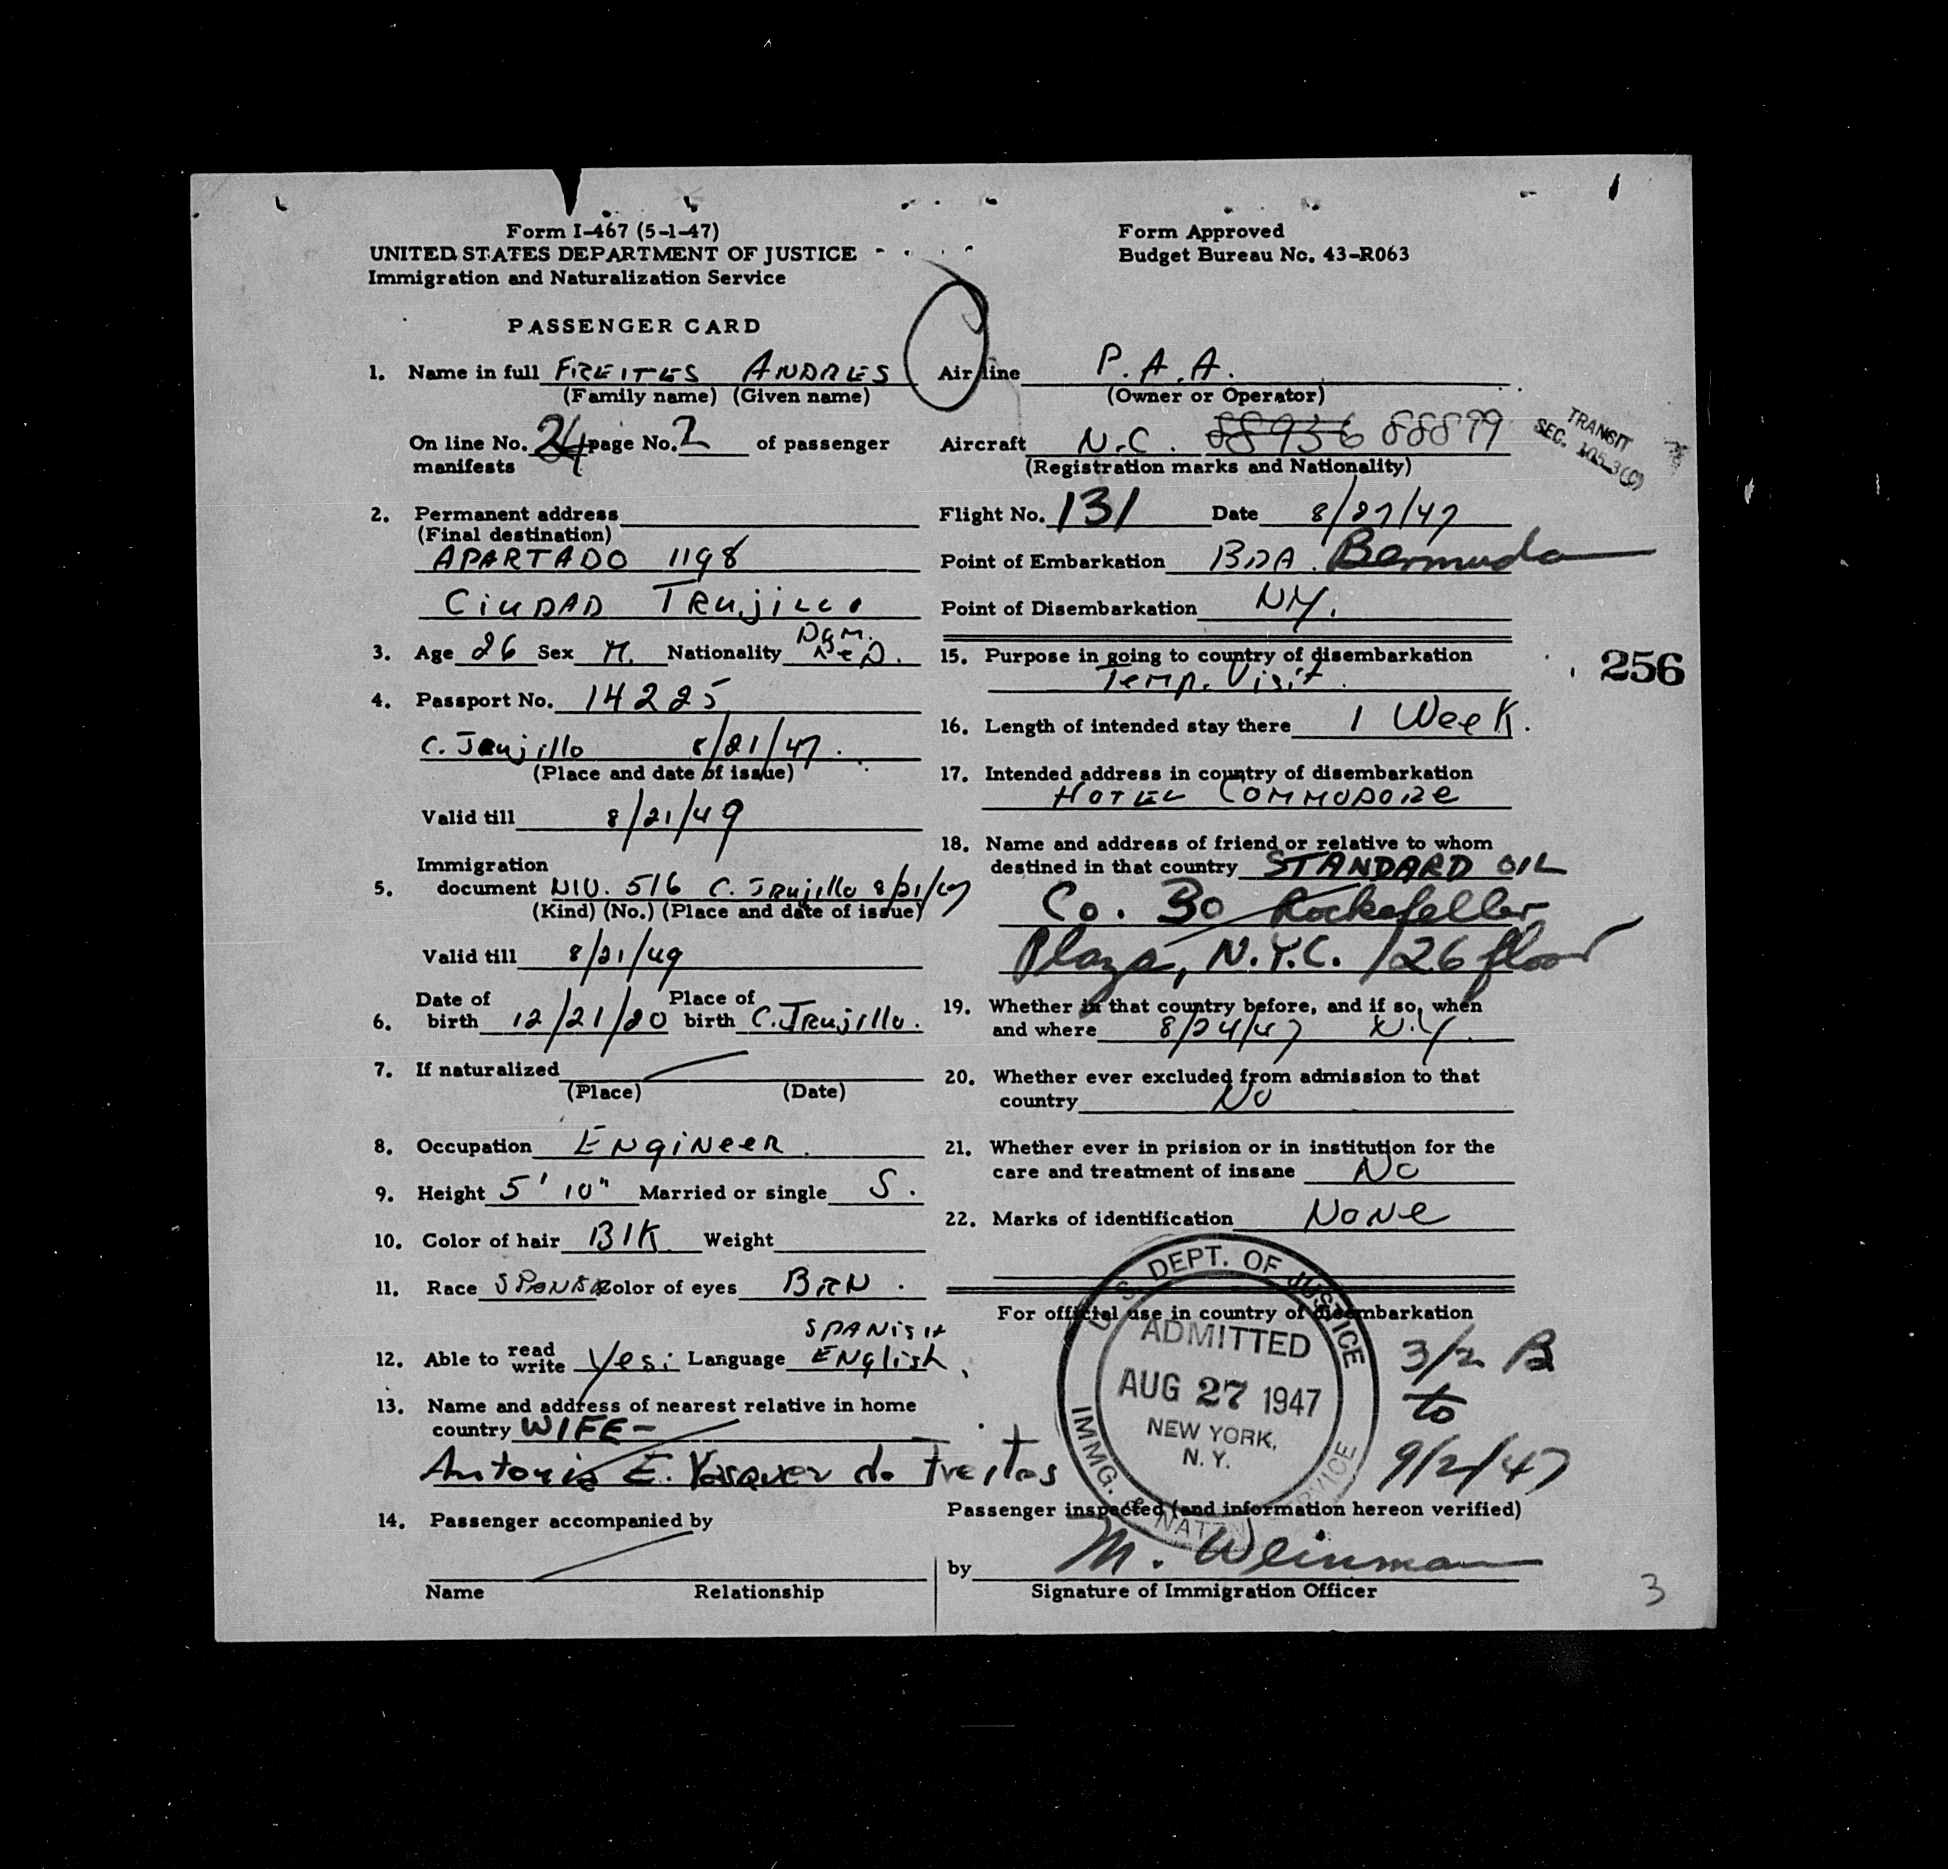 Form I-467 (5-1-47)
UNITED STATES DEPARTMENT OF JUSTICE
Immigration and Naturalization Service
Form Approved
Budget Bureau No. 43-R063
PASSENGER CARD
1. Name in full FREITES ANDRES
(Family name) (Given name)
On line No. 24 page No. 2 of passenger
manifests
2. Permanent address
(Final destination)
APARTADO 1198
CIUDAD TRUJILLO
3. Age 26 Sex M. Nationality Dom. Rep.
4. Passport No. 14225
C. Trujillo 8/21/47.
(Place and date of issue)
Valid till 8/21/49
Immigration
5. document NIV. 516 C. Trujillo 8/21/47
(Kind) (No.) (Place and date of issue)
Valid till 8/21/49
Date of Place of
6. birth 12/21/20 birth C. Trujillo.
7. If naturalized
(Place) (Date)
8. Occupation ENgiNeeR.
9. Height 5' 10" Married or single S.
10. Color of hair BlK Weight
11. Race Color of eyes BRN.
SPANISH
12. Able to read write Yes: Language ENglish
13. Name and address of nearest relative in home
country WIFE-
Antonia E. Vasquez de Freites
14. Passenger accompanied by
Name Relationship
Airline P.A.A.
(Owner or Operator)
Aircraft N.C. 88936 88899
(Registration marks and Nationality)
TRANSIT
SEC. 105-3(C)
Flight No. 131 Date 8/27/47
Point of Embarkation BDA. Bermuda
Point of Disembarkation NY.
15. Purpose in going to country of disembarkation
Temp. Visit.
256
16. Length of intended stay there 1 Week.
17. Intended address in country of disembarkation
HOTEL COMMODORE
18. Name and address of friend or relative to whom
destined in that country STANDARD OIL
Co. 30 Rockefeller
Plaza, N.Y.C. /26 floor
19. Whether in that country before, and if so, when
and where 8/24/47 N.Y.
20. Whether ever excluded from admission to that
country No
21. Whether ever in prision or in institution for the
care and treatment of insane No
22. Marks of identification NoNe
For official use in country of disembarkation
U. S. DEPT. OF JUSTICE
ADMITTED
AUG 27 1947
NEW YORK,
N. Y.
IMMG. & NATZ SERVICE
3/2 B
to
9/2/47
Passenger inspected (and information hereon verified)
by M. Weinman
Signature of Immigration Officer
3